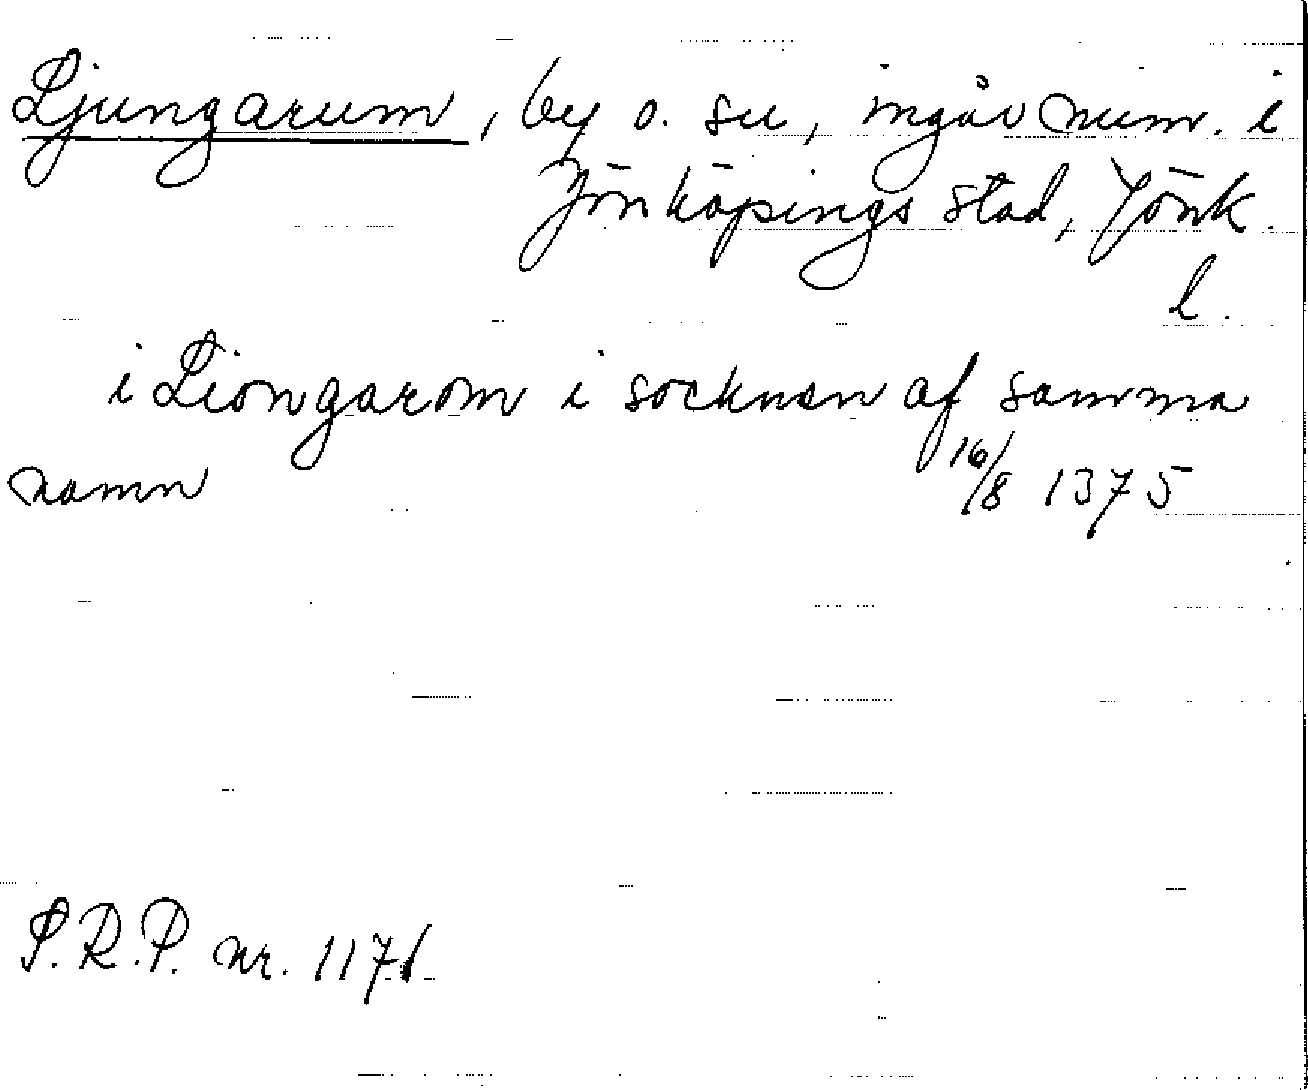 Ljungarum, by o. sn, ingår num. i
Jönköpings stad, Jönk.
l.
i Liongarom i socknen af samma
namn 16/8 1375
S.R.P. nr. 1171